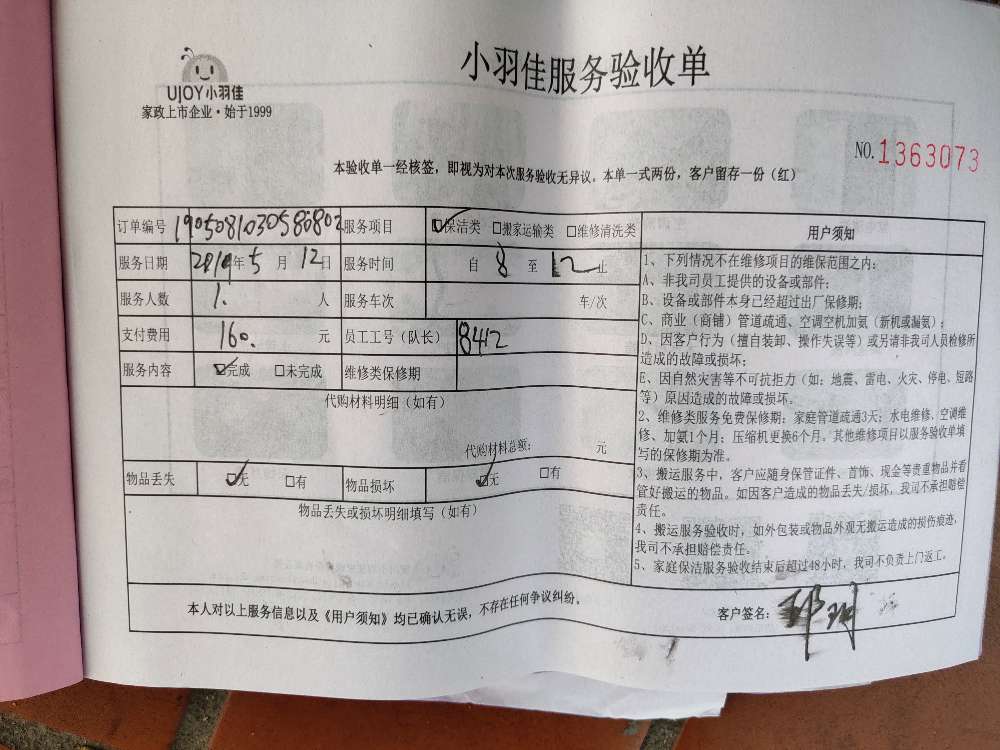 小羽佳服务验收单
UJOY小羽佳
家政上市企业·始于1999
NO.1363073
本验收单一经核签，即视为对本次服务验收无异议。本单一式两份，客户留存一份（红）
订单编号 1905081030580802 服务项目 ☑保洁类 □搬家运输类 □维修清洗类
服务日期 2019年5月12日 服务时间 自 8 至 12 止
服务人数 1. 人 服务车次 车/次
支付费用 160. 元 员工工号（队长） 8412
服务内容 ☑完成 □未完成 维修类保修期
代购材料明细（如有）
代购材料总额： 元
物品丢失 ☑无 □有 物品损坏 ☑无 □有
物品丢失或损坏明细填写（如有）
用户须知
1、下列情况不在维修项目的维保范围之内：
A、非我司员工提供的设备或部件；
B、设备或部件本身已经超过出厂保修期；
C、商业（商铺）管道疏通、空调空机加氨（新机或漏氨）；
D、因客户行为（擅自装卸、操作失误等）或另请非我司人员检修所
造成的故障或损坏；
E、因自然灾害等不可抗拒力（如：地震、雷电、火灾、停电、短路
等）原因造成的故障或损坏。
2、维修类服务免费保修期：家庭管道疏通3天；水电维修、空调维
修、加氨1个月；压缩机更换6个月。其他维修项目以服务验收单填
写的保修期为准。
3、搬运服务中，客户应随身保管证件、首饰、现金等贵重物品并看
管好搬运的物品。如因客户造成的物品丢失/损坏，我司不承担赔偿
责任。
4、搬运服务验收时，如外包装或物品外观无搬运造成的损伤痕迹，
我司不承担赔偿责任。
5、家庭保洁服务验收结束后超过48小时，我司不负责上门返工。
本人对以上服务信息以及《用户须知》均已确认无误，不存在任何争议纠纷。
客户签名：